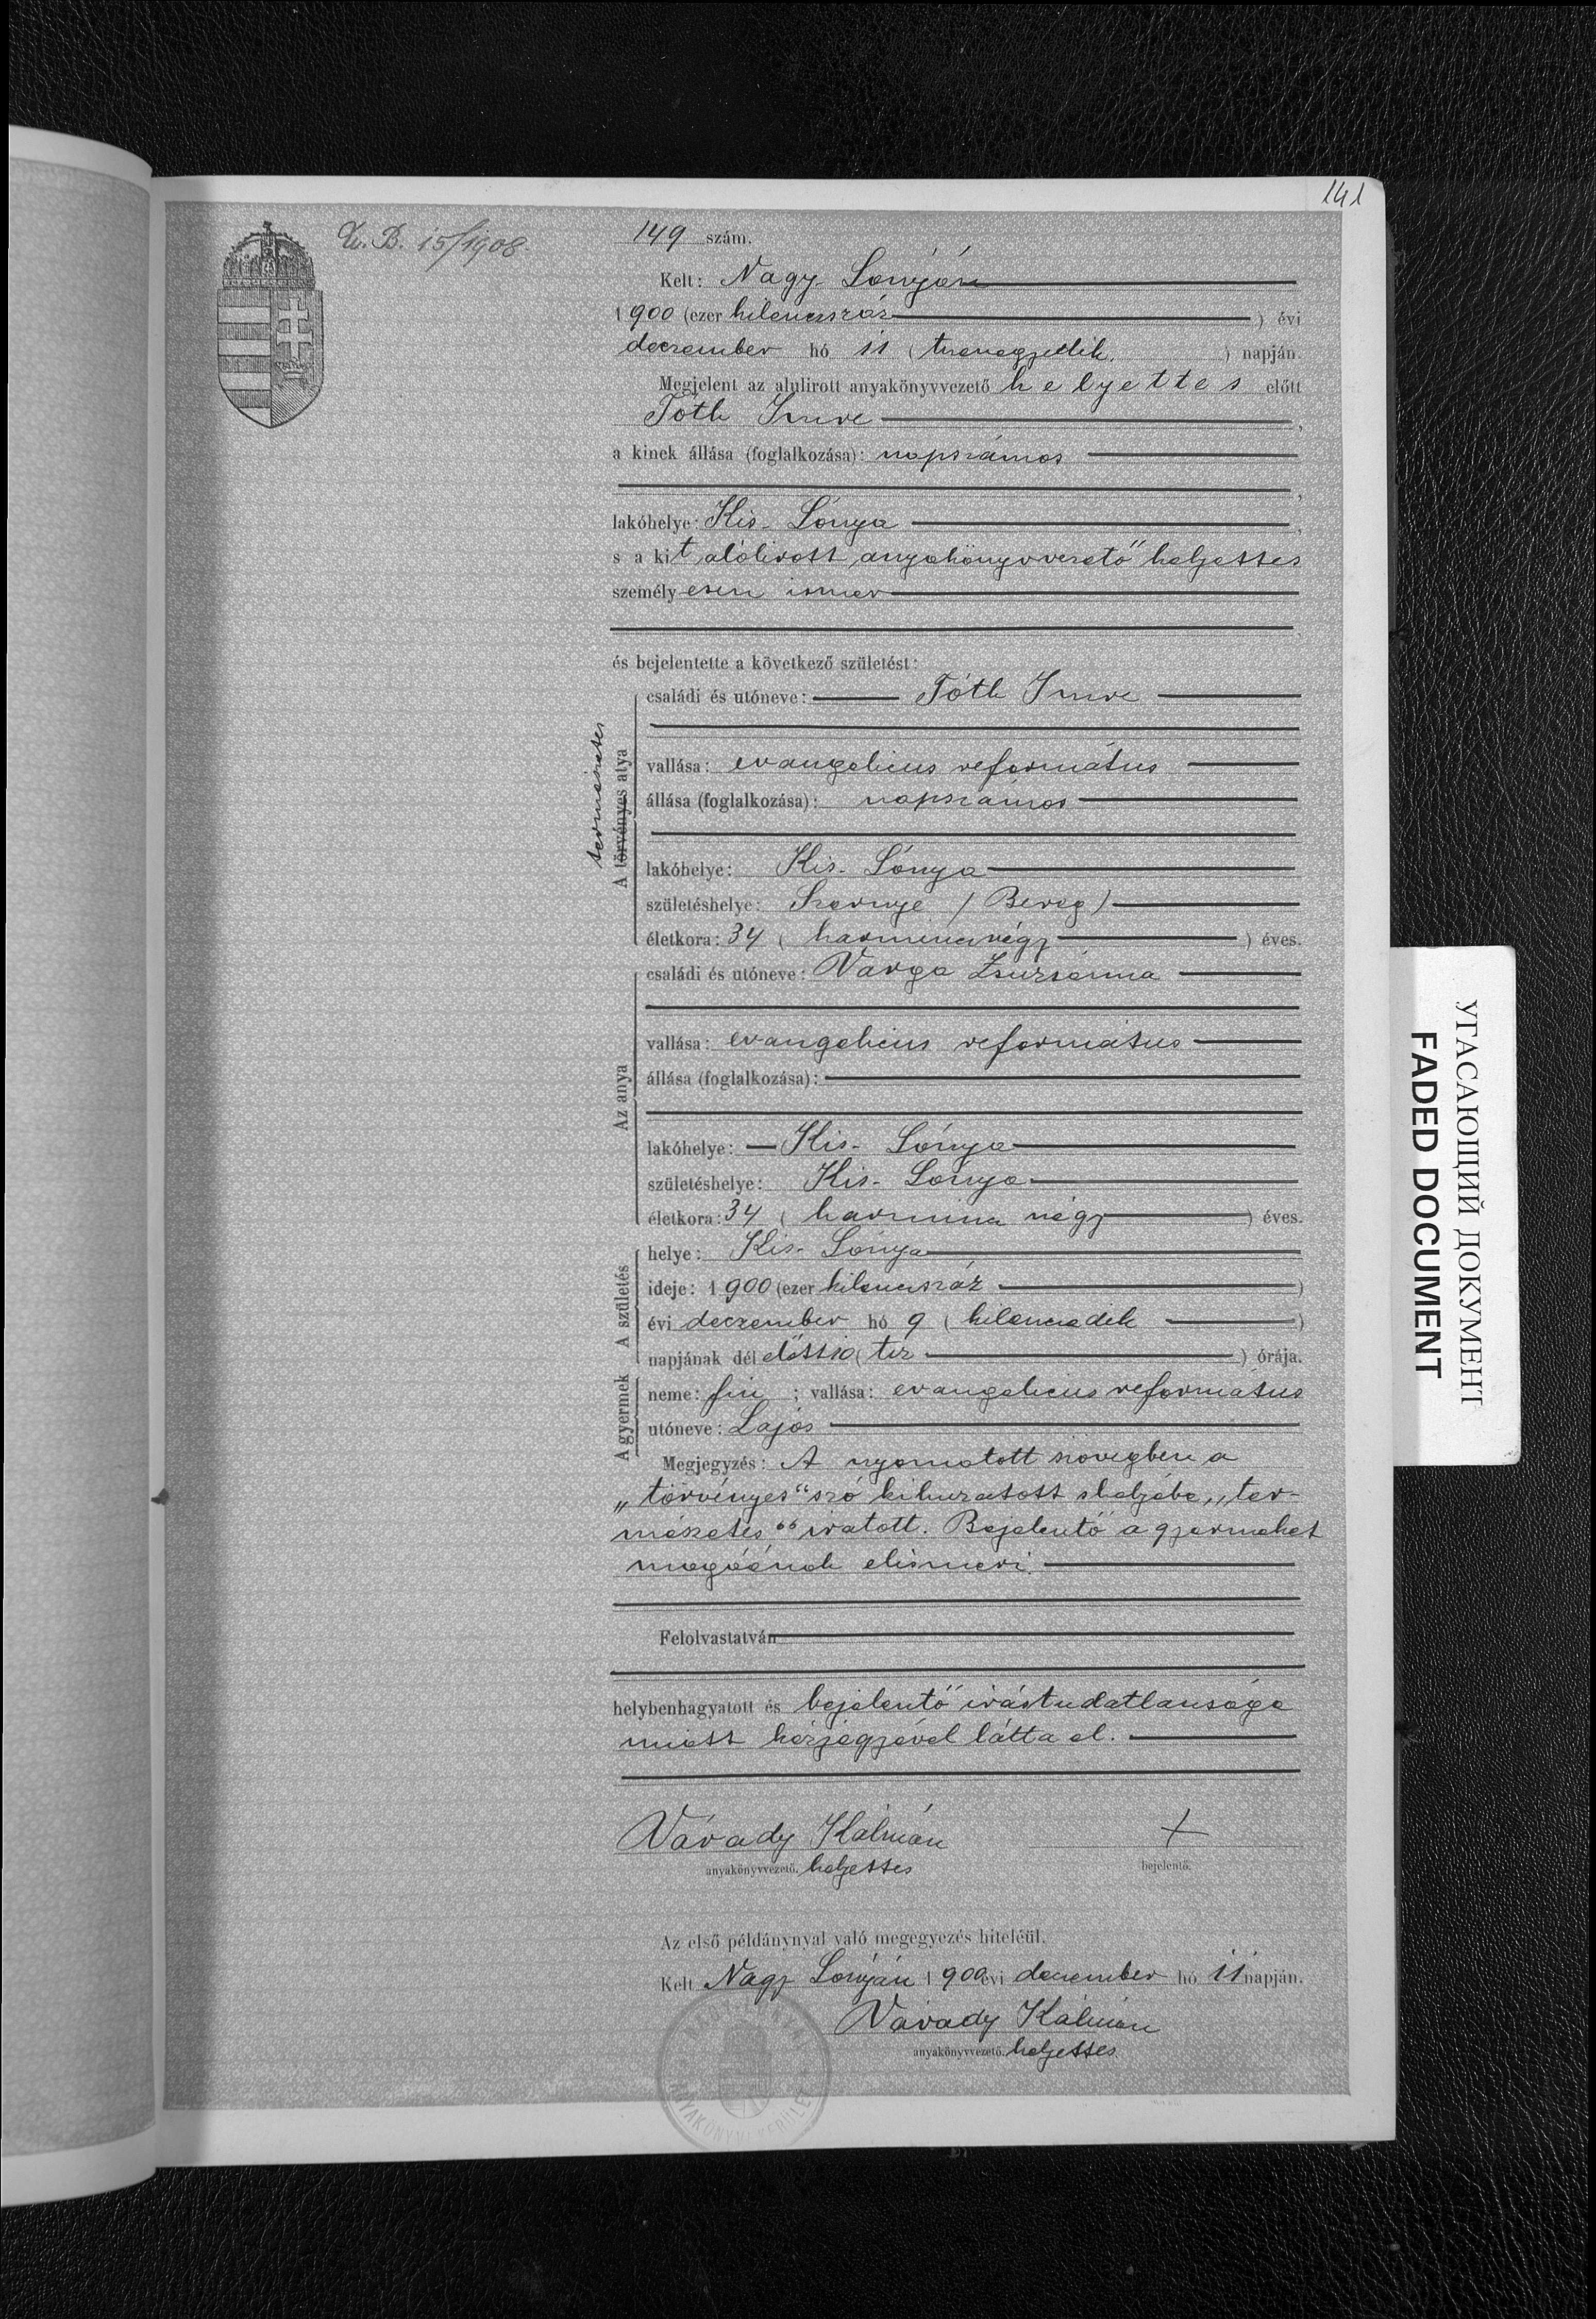 141
U. B. 15/1908.
149 szám.
Kelt: Nagy Lónyán
1900 (ezer kilenczszáz) évi
deczember hó 11 (tizenegyedik.) napján.
Megjelent az alulirott anyakönyvvezető helyettes előtt
Tóth Imre,
a kinek állása (foglalkozása): napszámos
lakóhelye: Kis-Lónya,
s a kit alólirott anyakönyvvezető helyettes
személyesen ismer
és bejelentette a következő születést:
természetes
A törvényes atya
családi és utóneve: Tóth Imre
vallása: evangelicus református
állása (foglalkozása): napszámos
lakóhelye: Kis-Lónya
születéshelye: Szernye (Bereg)
életkora: 34 (harmincznégy) éves.
Az anya
családi és utóneve: Varga Zsuzsánna
vallása: evangelicus református
állása (foglalkozása):
lakóhelye: Kis-Lónya
születéshelye: Kis-Lónya
életkora: 34 (harmincz négy) éves.
A születés
helye: Kis-Lónya
ideje: 1900 (ezer kilenczszáz)
évi deczember hó 9 (kilenczedik)
napjának délelőtt 10 (tiz) órája.
A gyermek
neme: fiu; vallása: evangelicus református
utóneve: Lajos
Megjegyzés: A nyomatott szövegben a
„törvényes“ szó kihuzatott s helyébe „ter-
mészetes“ iratott. Bejelentő a gyermeket
magáénak elismeri.
Felolvastatván
helybenhagyatott és bejelentő irástudatlansága
miatt kézjegyével látta el.
Várady Kálmán +
anyakönyvvezető. helyettes bejelentő.
Az első példánynyal való megegyezés hiteléül.
Kelt Nagy Lónyán 1900 évi deczember hó 11 napján.
Várady Kálmán
anyakönyvvezető. helyettes
ANYAKÖNYVI KERÜLET
УГАСАЮЩИЙ ДОКУМЕНТ
FADED DOCUMENT